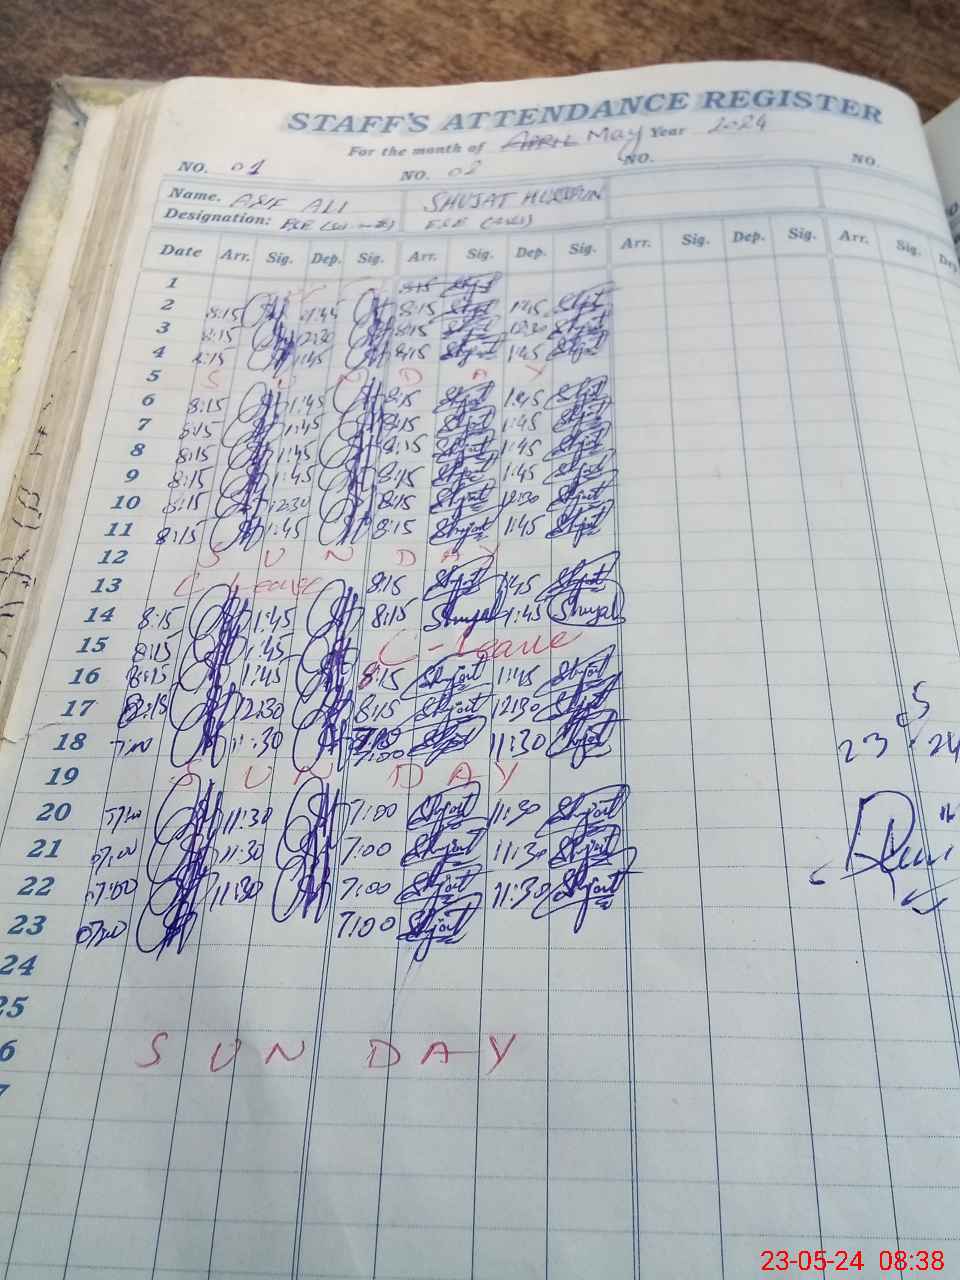 STAFF'S ATTENDANCE REGISTER
For the month of APRIL May Year 2024
NO. 01 NO. 02 NO. NO.
Name. ASIF ALI SHUJAT HUSSAIN
Designation: ESE ESE
Date Arr. Sig. Dep. Sig. Arr. Sig. Dep. Sig. Arr. Sig. Dep. Sig. Arr. Sig. Dep
1 8:15
2 8:15 1:45 8:15 Shjat 1:45 Shjat
3 8:15 12:30 8:15 Shjat 12:30 Shjat
4 8:15 1:45 8:15 Shjat 1:45 Shjat
5 S U N D A Y
6 8:15 1:45 8:15 Shjat 1:45 Shjat
7 8:15 1:45 8:15 Shjat 1:45 Shjat
8 8:15 1:45 8:15 Shjat 1:45 Shjat
9 8:15 1:45 8:15 Shjat 1:45 Shjat
10 8:15 12:30 8:15 Shjat 12:30 Shjat
11 8:15 1:45 8:15 Shjat 1:45 Shjat
12 S U N D A Y
13 C Leave 8:15 Shjat 1:45 Shjat
14 8:15 1:45 8:15 Shujat 1:45 Shujat
15 8:15 1:45 C-Leave
16 8:15 1:45 8:15 Shjat 1:45 Shjat
17 8:15 12:30 8:15 Shjat 12:30 Shjat
18 7:00 11:30 7:00 Shjat 11:30 Shjat
19 S U N D A Y
20 7:00 11:30 7:00 Shjat 11:30 Shjat
21 07:00 11:30 7:00 Shjat 11:30 Shjat
22 07:00 11:30 7:00 Shjat 11:30 Shjat
23 07:00 7:00 Shjat
23/5/24
24
25
6 S U N D A Y
7
23-05-24 08:38